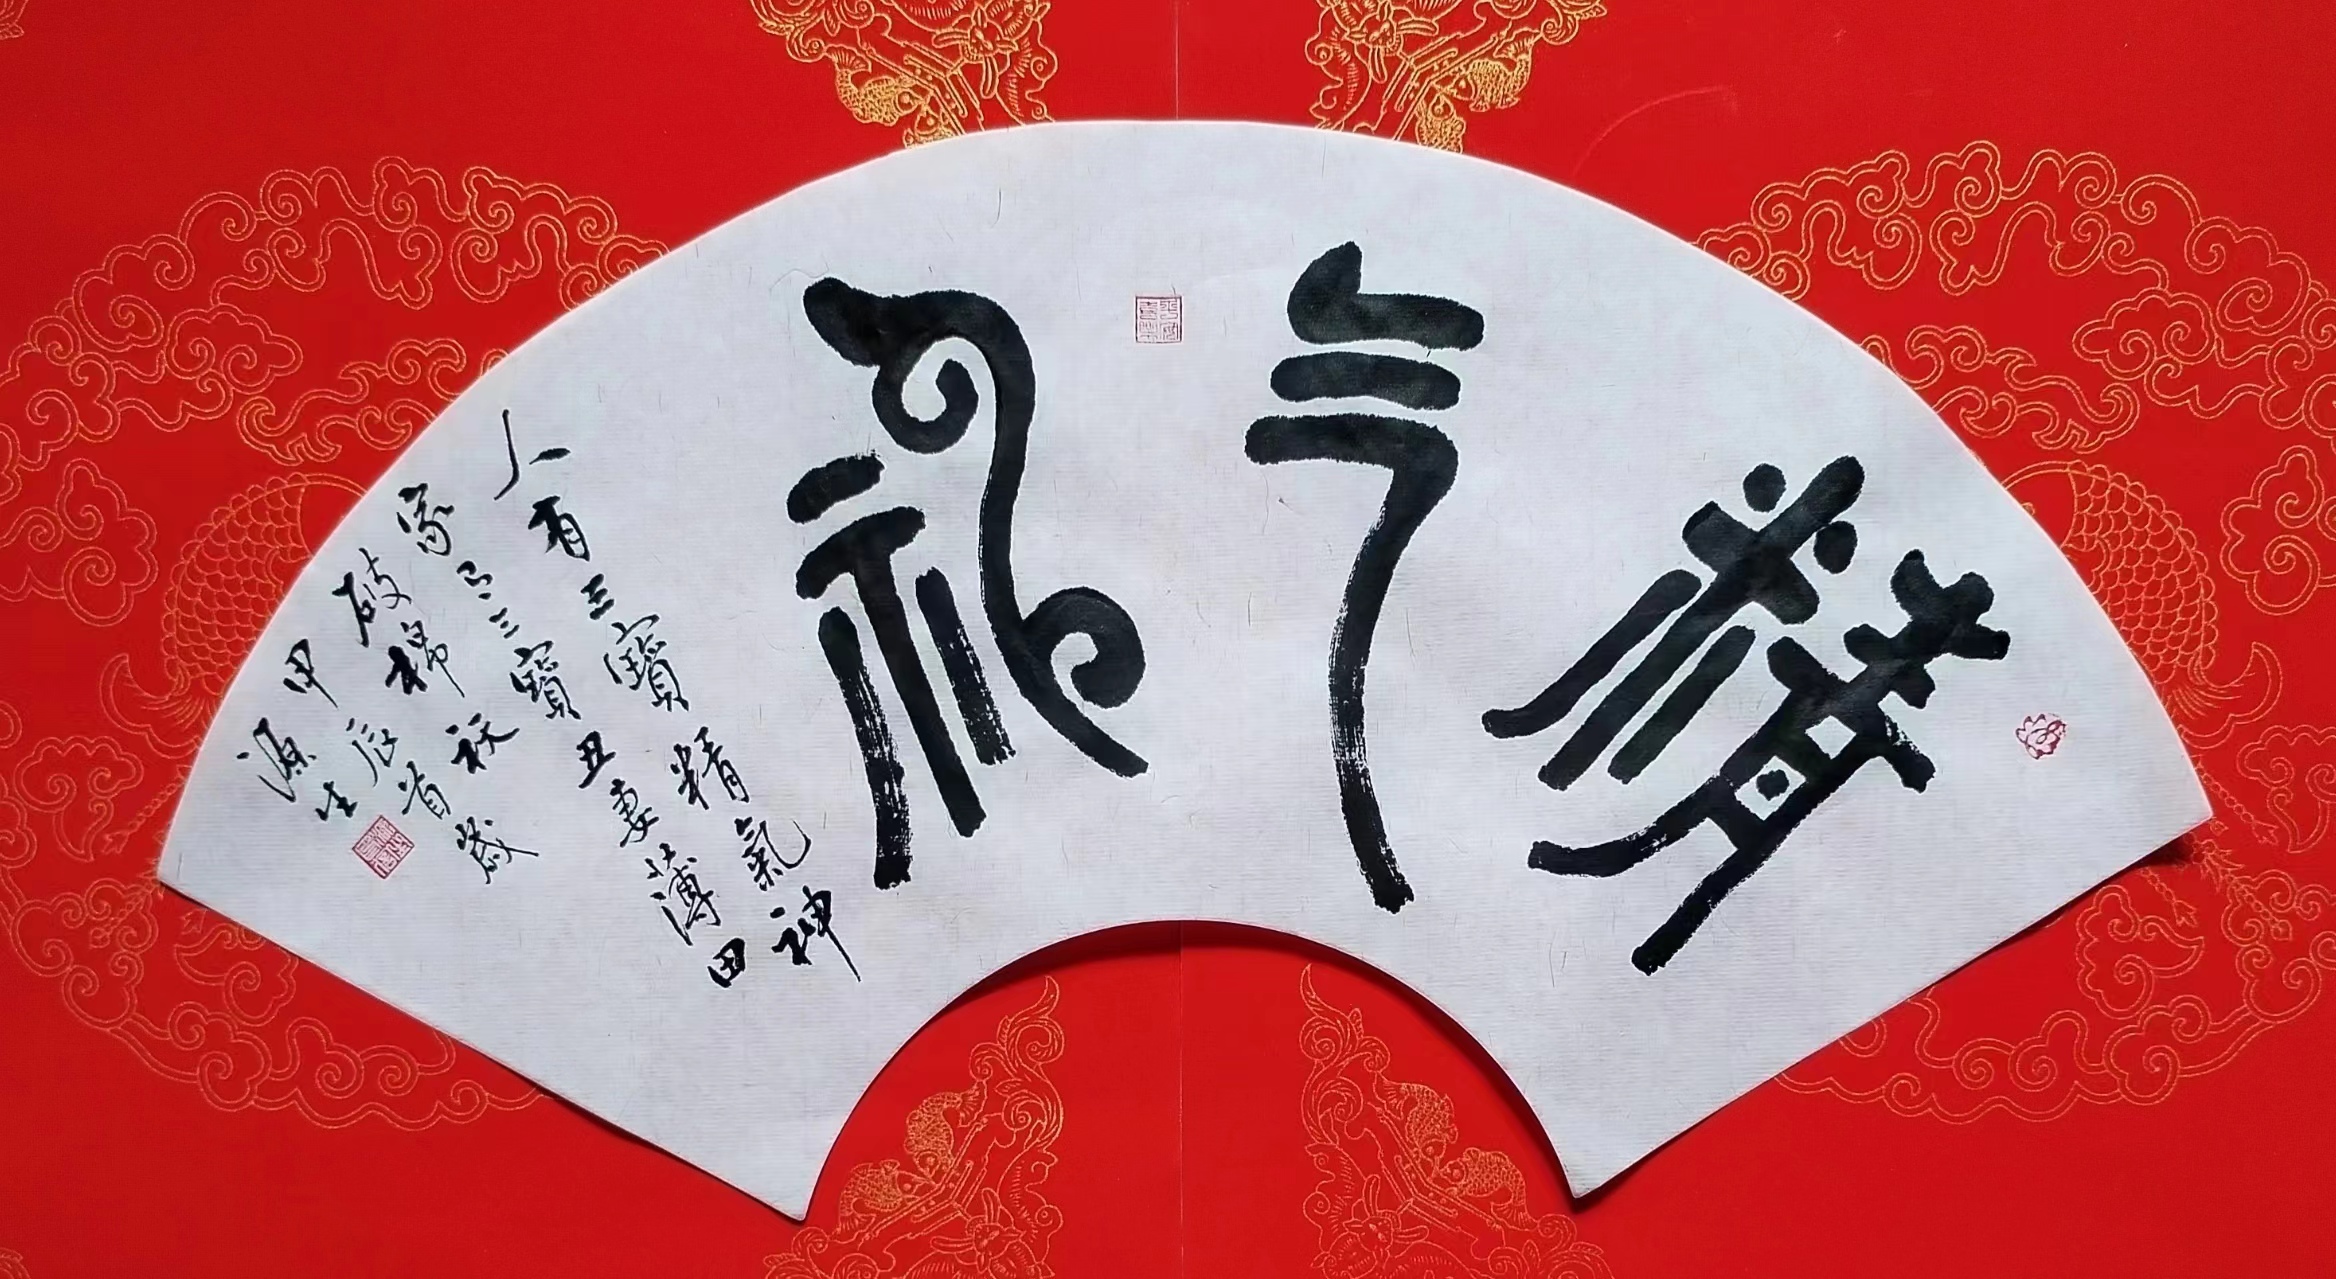 精气神
人有三寶精氣神
家有三寶丑妻薄田
破棉袄
甲辰首歲
源生